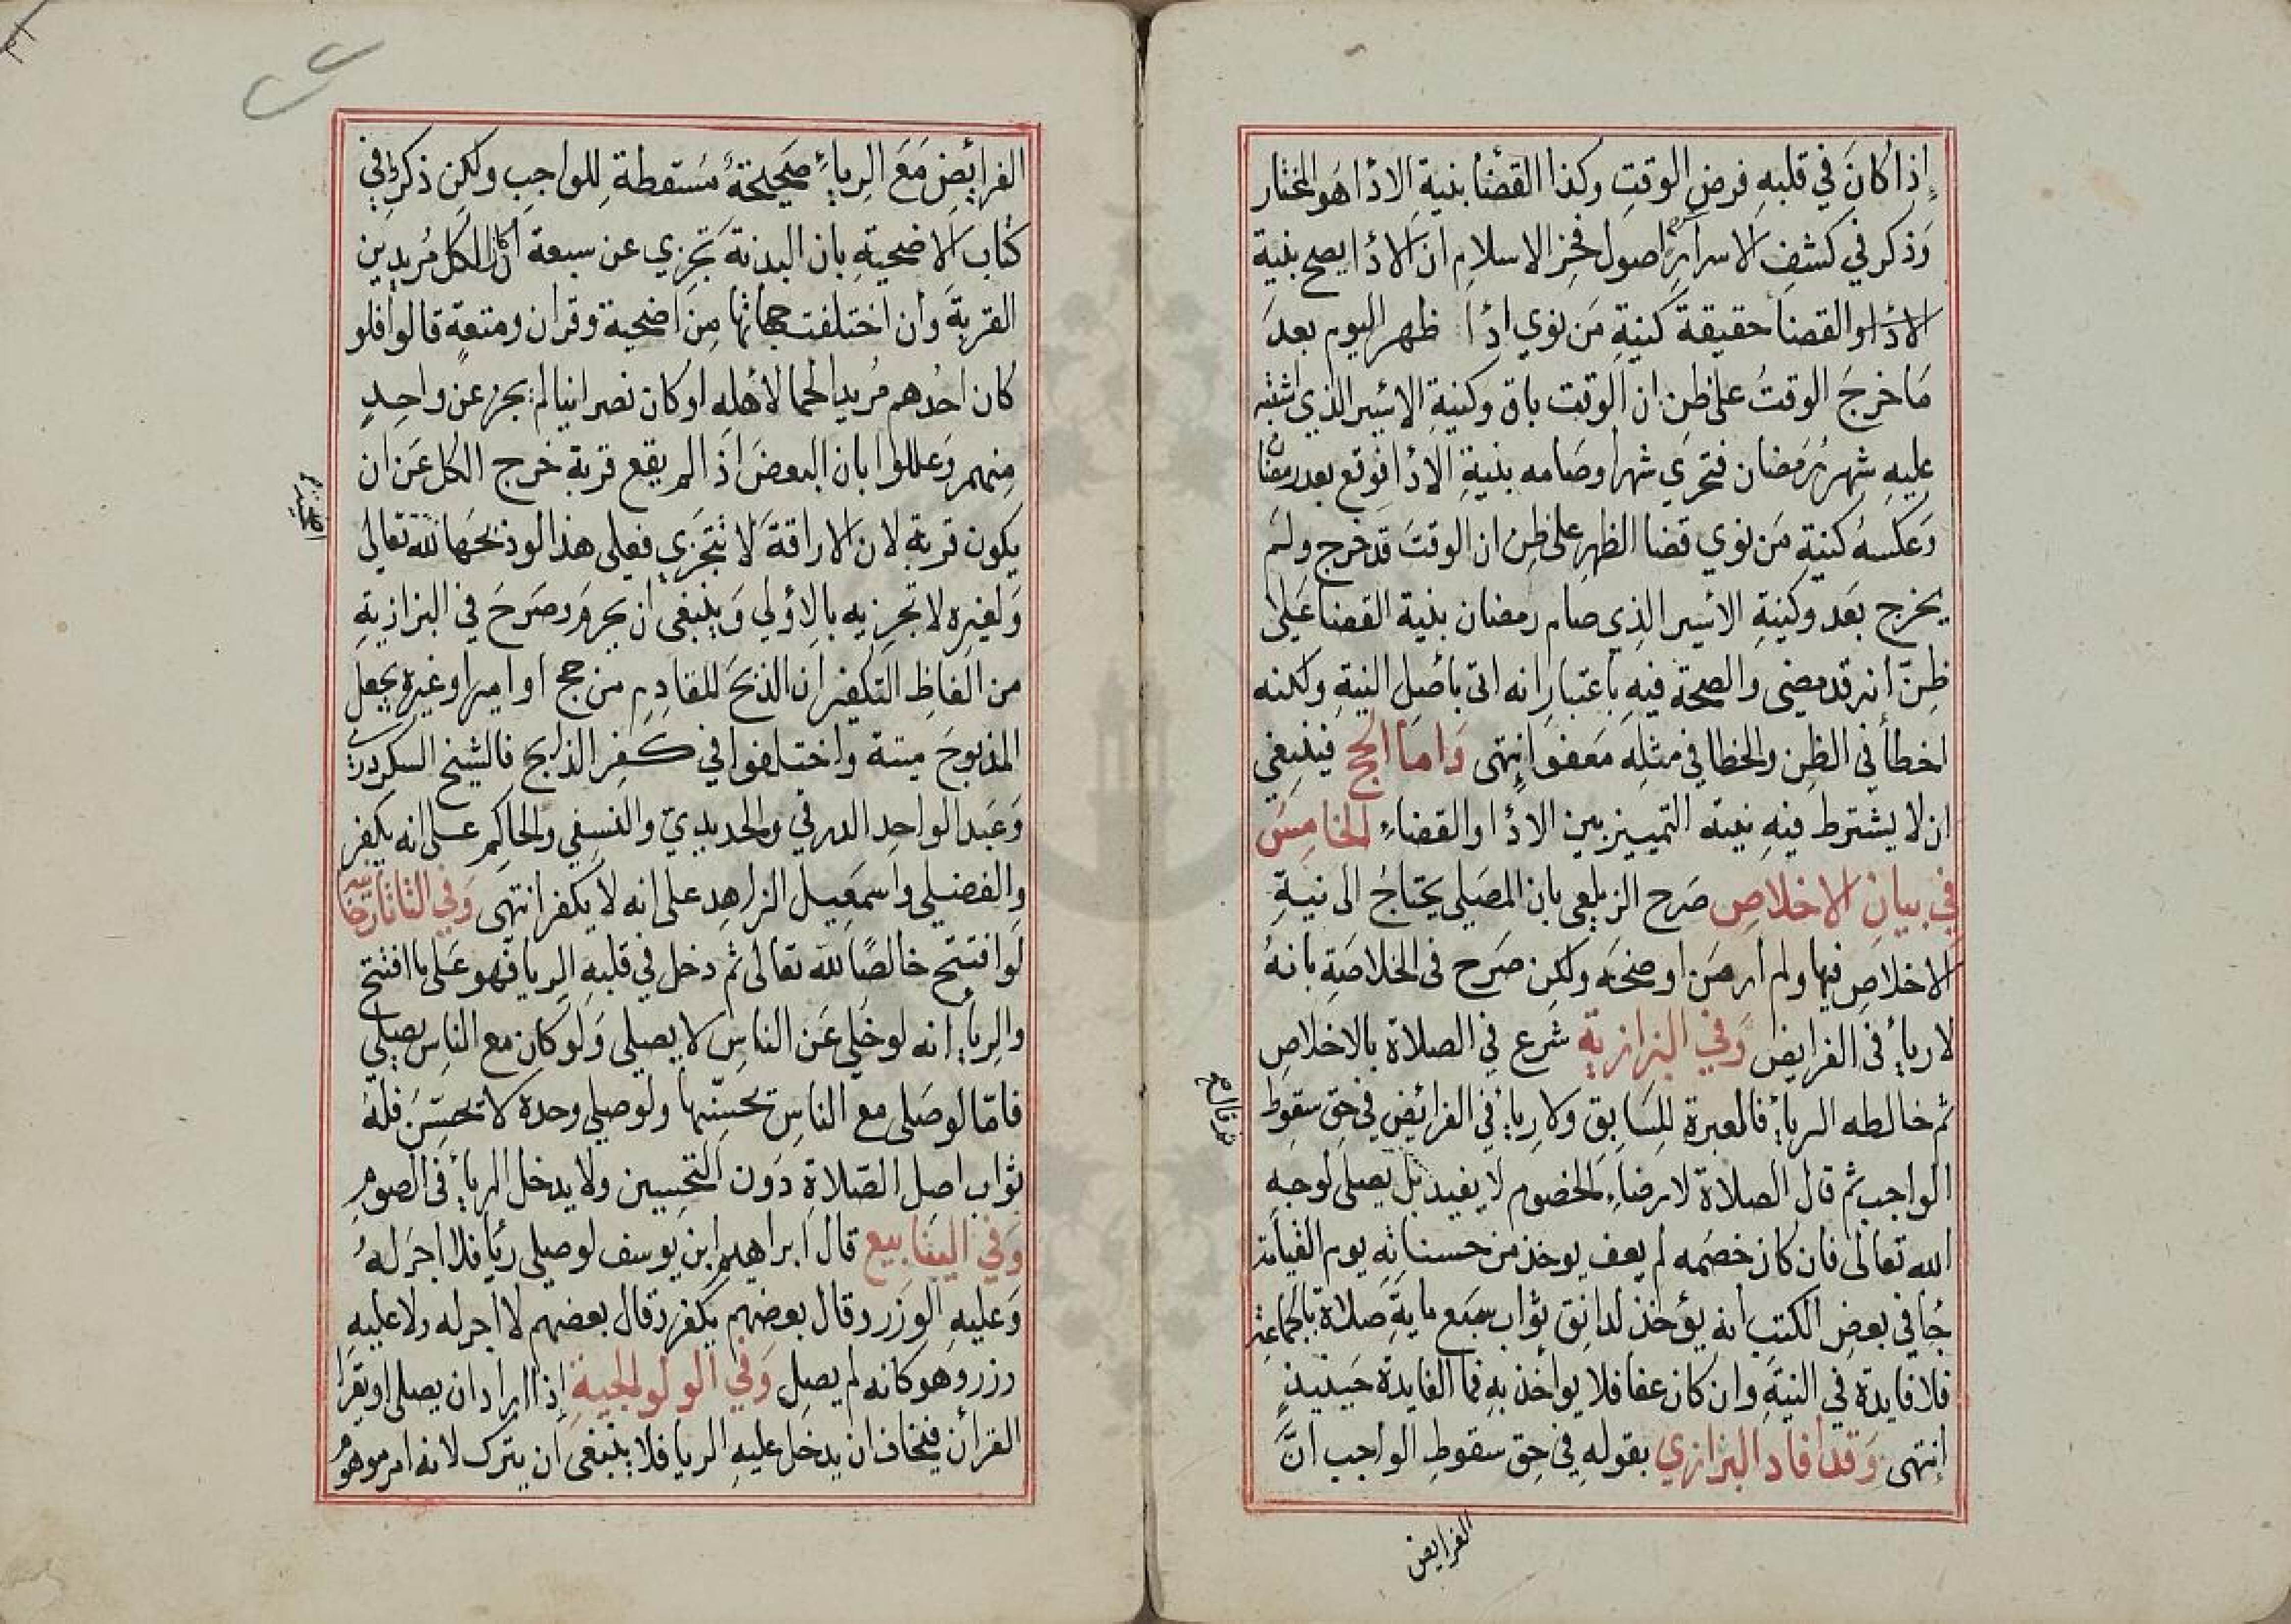 إذا كان في قلبه فرض الوقت وكذا القضا بنية الادا هو المختار
وذكر في كشف الاسرار اصول فخر الاسلام ان الادا يصح بنية
الادا والقضا حقيقة كنية من نوي ادا ظهر اليوم بعد
ما خرج الوقت على ظن ان الوقت باق وكنية الاسير الذي اشتبه
عليه شهر رمضان فتحري شهرا وصامه بنية الادا فوقع بعد رمضان
وعكسه كنية من نوي قضا الظهر على ظن ان الوقت قد خرج ولم
يخرج بعد وكنية الاسير الذي صام رمضان بنية القضا على
ظن انه قد مضى والصحة فيه باعتبار انه اتى باصل النية ولكنه
اخطأ في الظن والخطا في مثله معفو انتهى واما الحج فينبغي
ان لا يشترط فيه نية التمييز بين الادا والقضاء الخامس
في بيان الاخلاص صرح الزيلعي بان المصلي يحتاج الى نية
الاخلاص فيها ولم ار من اوضحه ولكن صرح في الخلاصة بانه
لا رياء في الفرايض وفي البزازية شرع في الصلاة بالاخلاص
ثم خالطه الرياء فالعبرة للسابق ولا رياء في الفرائض في حق سقوط
الواجب ثم قال الصلاة لارضاء الخصوم لا يفيد بل يصلي لوجه
الله تعالى فان كان خصمه لم يعف يوخذ من حسناته يوم القيامة
جا في بعض الكتب انه يؤخذ لدانق ثواب سبع ماية صلاة بالجماعة
فلا فايدة في النية وان كان عفا فلا يواخذ به فما الفايدة حينيذ
انتهى وقد أفاد البزازي بقوله في حق سقوط الواجب ان
الفرايض
الفرائض مع الرياء صحيحة مسقطة للواجب ولكن ذكر في
كتاب الاضحية بان البدنة تجزي عن سبعة ان كان الكل مريدين
القربة وان اختلفت جهاتها من اضحية وقران ومتعة قالوا فلو
كان احدهم مريدا لحما لأهله او كان نصرانيا لم يجز عن واحد
منهم وعللوا بان البعض اذا لم يقع قربة خرج الكل عن ان
يكون قربة لان الاراقة لا تتجزي فعلى هذا لو ذبحها لله تعالى
ولغيره لا تجزيه بالاولي وينبغي ان يحرم وصرح في البزازية
من الفاظ التكفير ان الذبح للقادم من حج او امير او غيره يجعل
المذبوح ميتة واختلفوا في كفر الذابح فالشيخ السكردري
وعبد الواحد الدرقي والحديدي والنسفي والحاكم على انه يكفر
والفضيلي واسمعيل الزاهد على انه لا يكفر انتهى وفي التاتارخانية
لو افتتح خالصا لله تعالى ثم دخل في قلبه الريا فهو على ما افتتح
والرياء انه لو خلي عن الناس لا يصلي ولو كان مع الناس يصلي
فامّا لو صلى مع الناس يحسنها ولو صلي وحده لا تحسن فله
ثواب اصل الصلاة دون التحسين ولا يدخل الرياء في الصوم
وفي الينابيع قال ابراهيم ابن يوسف لو صلى رئا فلا اجر له
وعليه الوزر وقال بعضهم يكفر وقال بعضهم لا اجر له ولا عليه
وزر وهو كانه لم يصل وفي الولوالجية إذا اراد ان يصلي او يقرا
القرآن فيخاف ان يدخل عليه الريا فلا ينبغي ان يترك لانه امر موهوم